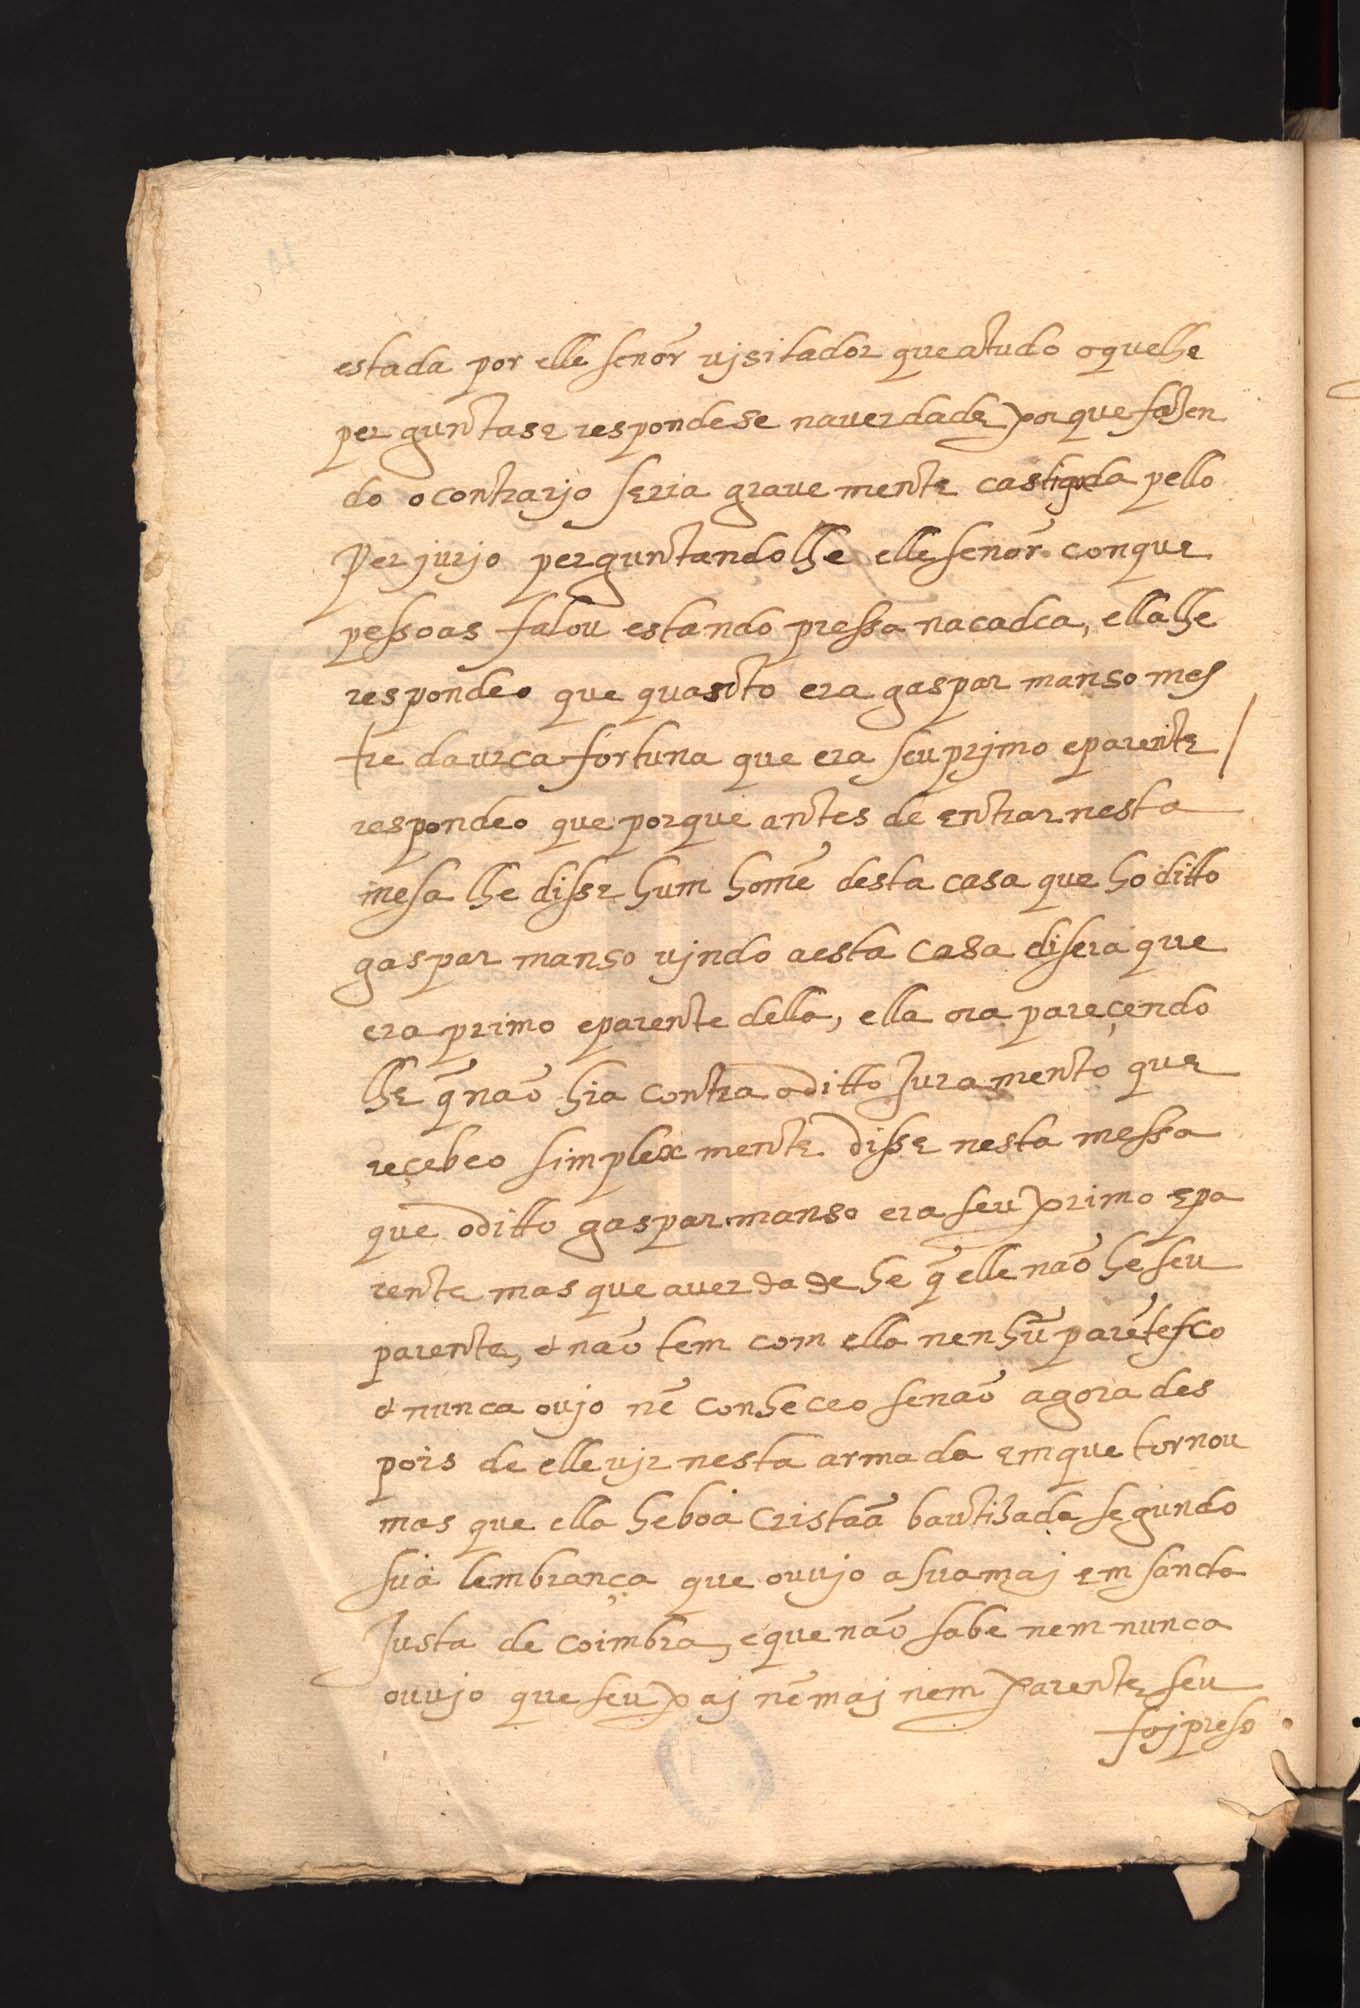 estada por elle senõr vjsitador que a tudo o que lhe
perguntase respondese na verdade porque fazen
do o contrarjo seria grauemente castigada pello
Perjurjo perguntandolhe elle senõr con que
pessoas falou estando pressa na cadea, ella lhe
respondeo que quanto era gaspar manso mes
tre da urca fortuna que era seu prjmo e parente
respondeo que porque antes de entrar nesta
mesa lhe disse hum homẽ desta casa que ho ditto
gaspar manso vjndo a esta casa disera que
era primo e parente della, ella ora pareçendo
lhe q̃ não hia contra o ditto Juramento que
reçebeo simplex mente disse nesta messa
que o ditto gaspar manso era seu primo e pa
rente mas que a verdade he q̃ elle não he seu
parente, e não tem com ella nenhũ parẽtesco
e nunca o vjo nẽ conheceo senão agora des
pois de elle vjr nesta armada em que tornou
mas que ella he boa Cristaã bautizada segundo
sua lembrança que ouvjo a sua maj em sancta
Justa de Coimbra, e que não sabe nem nunca
ouvjo que seu paj nẽ maj nem parente seu
foj preso